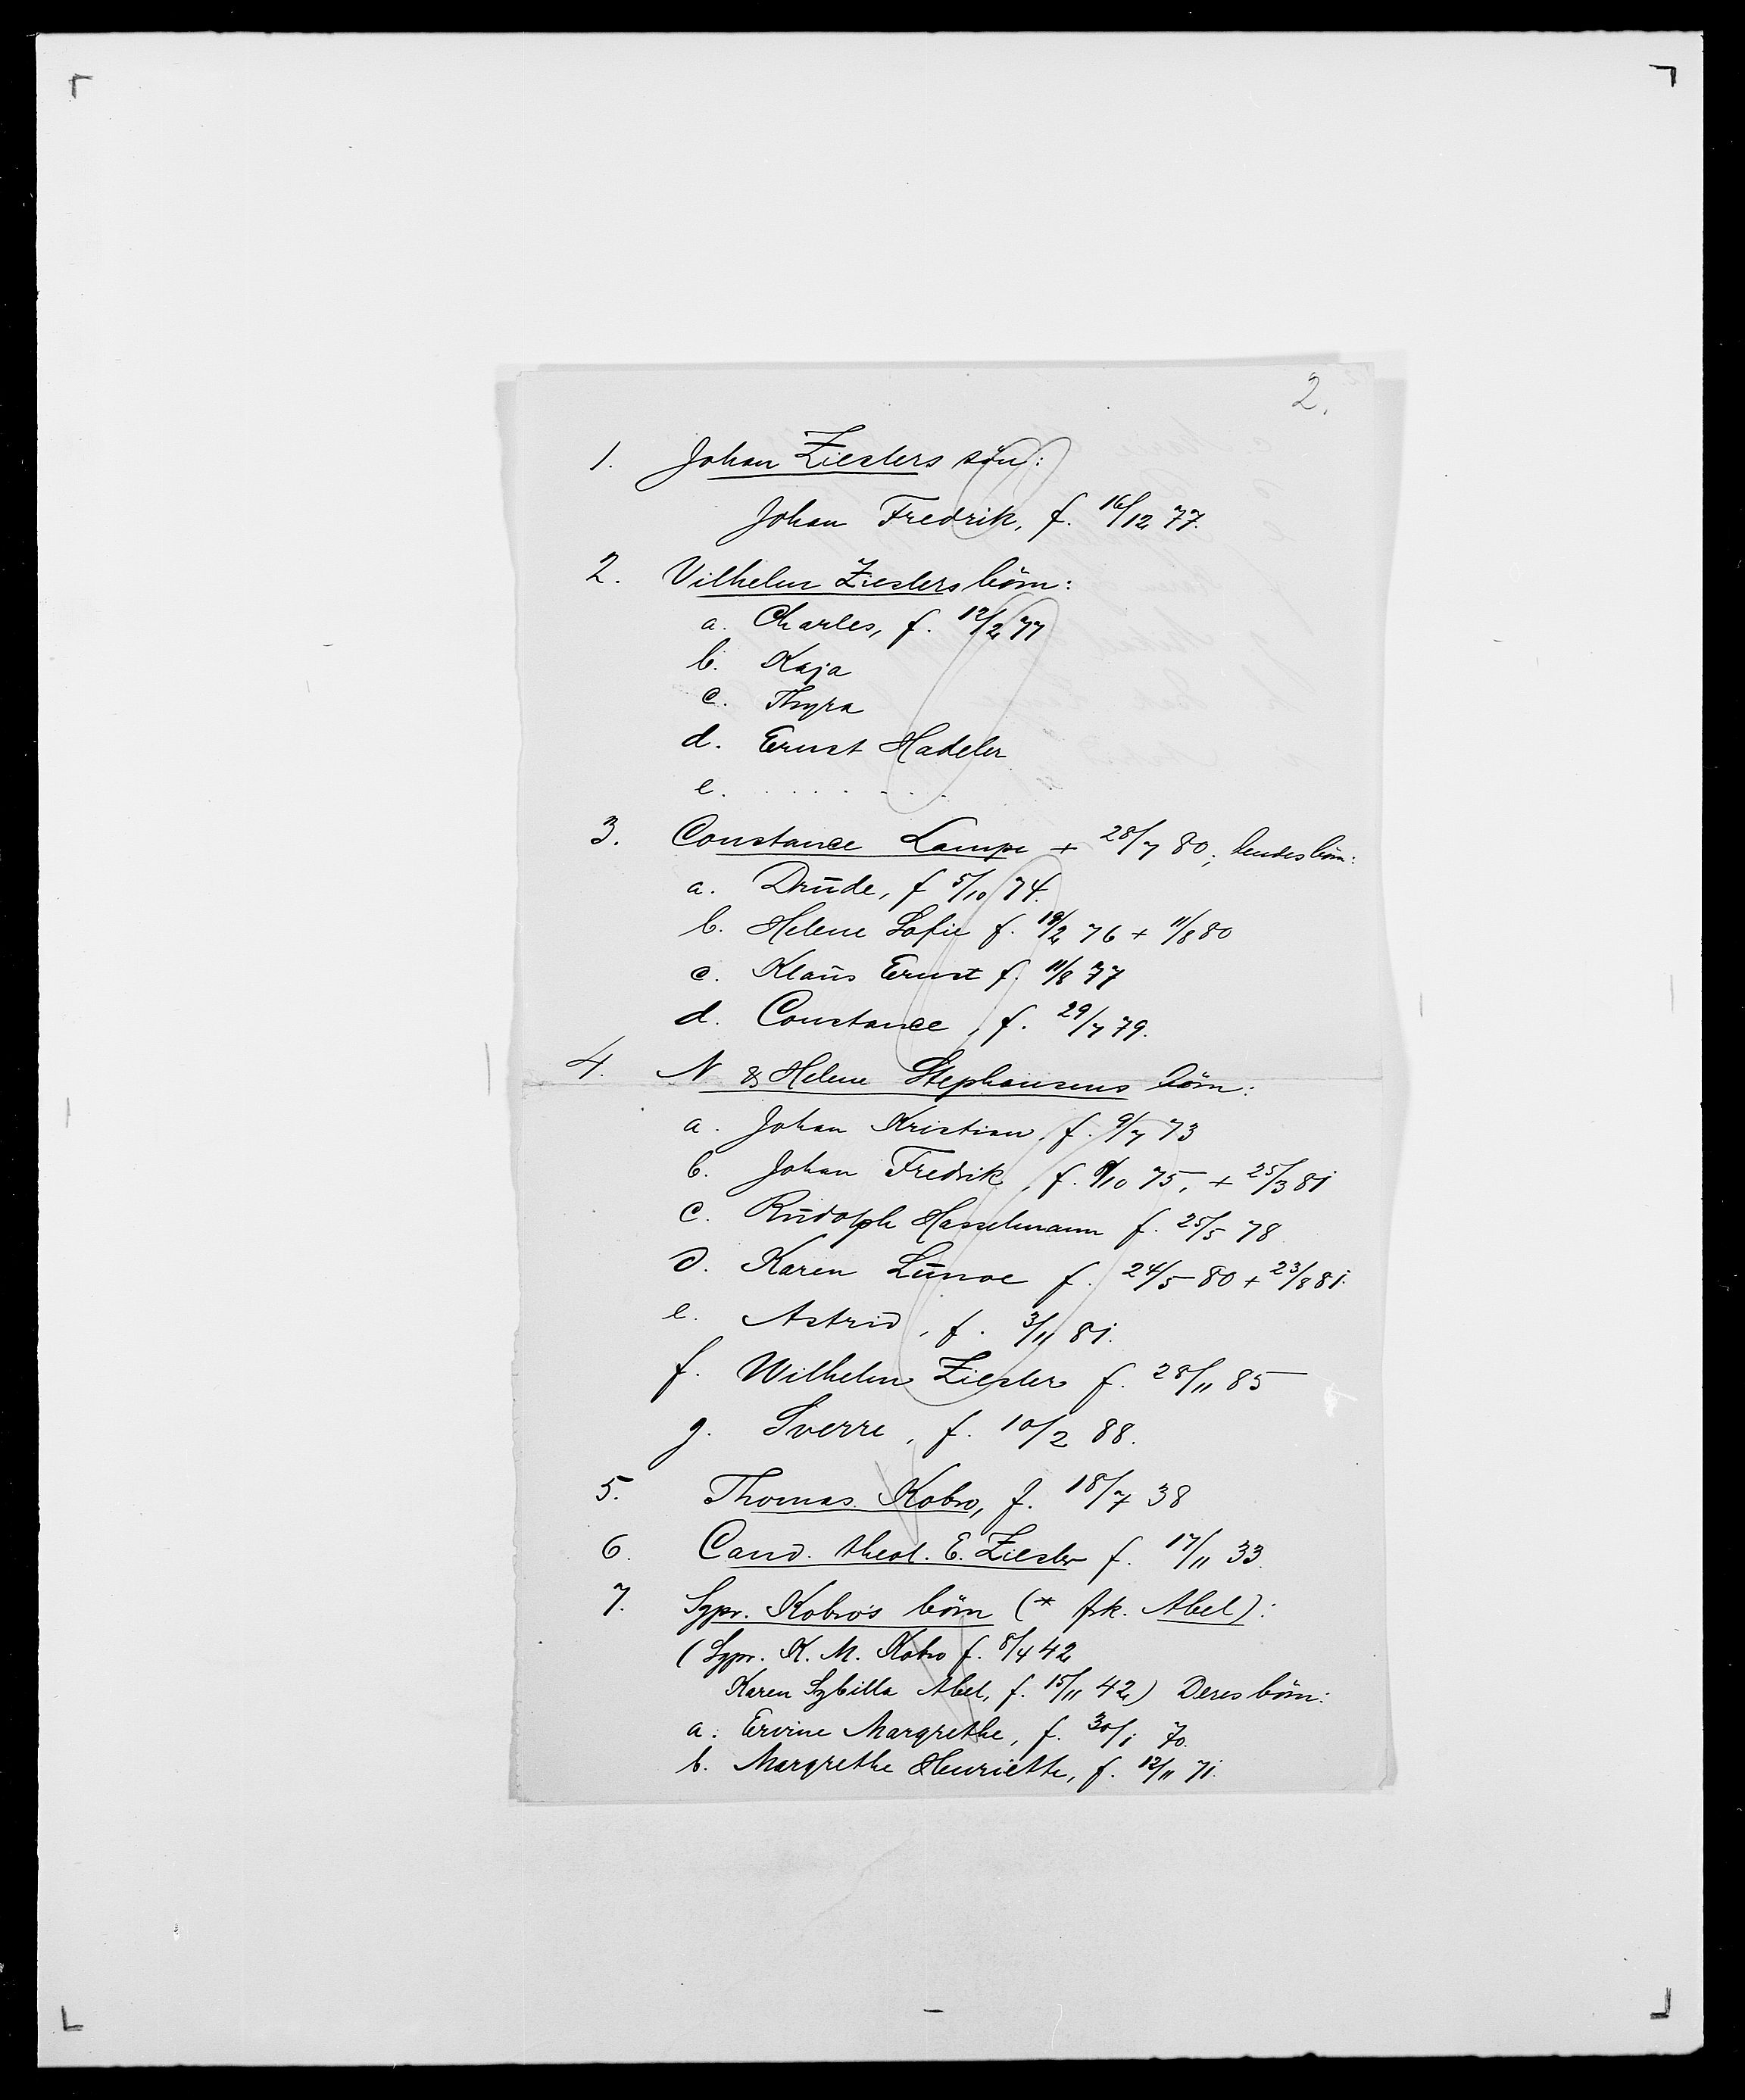 2.
1. Johan Zieslers søn:
Johan Fredrik, f. 16/12 77.
2. Vilhelm Zieslers börn:
a. Charles, f. 12/2 77
b. Kaja
c. Thyra
d. Ernst Hadeler
e. . . . . . . .
3. Constance Lampe + 28/7 80; hendes börn:
a. Drude, f 5/10 74.
b. Helene Sofie f. 19/2 76 + 11/8 80
c. Klaus Ernst f. 11/8 77
d. Constance, f. 29/7 79.
4. N & Helene Stephansens börn:
a. Johan Kristian, f. 9/7 73
b. Johan Fredrik, f. 8/10 75, + 25/3 81
c. Rudolph Hasselmann f. 25/5 78
d. Karen Lunoe f. 24/5 80 + 23/8 81.
e. Astrid, f. 3/11 81.
f. Wilhelm Ziesler f. 28/11 85
g. Sverre, f. 10/2 88.
5. Thomas Kobro, f. 18/7 38
6. Cand. theol. E. Ziesler f. 17/11 33.
7. Sgpr. Kobro's börn (* frk. Abel):
(Sgpr. K. M. Kobro f. 8/4 42
Karen Sybilla Abel, f. 15/11 42) Deres börn:
a. Ervine Margrethe, f. 30/1 70.
b. Margrethe Henriette, f. 12/11 71.